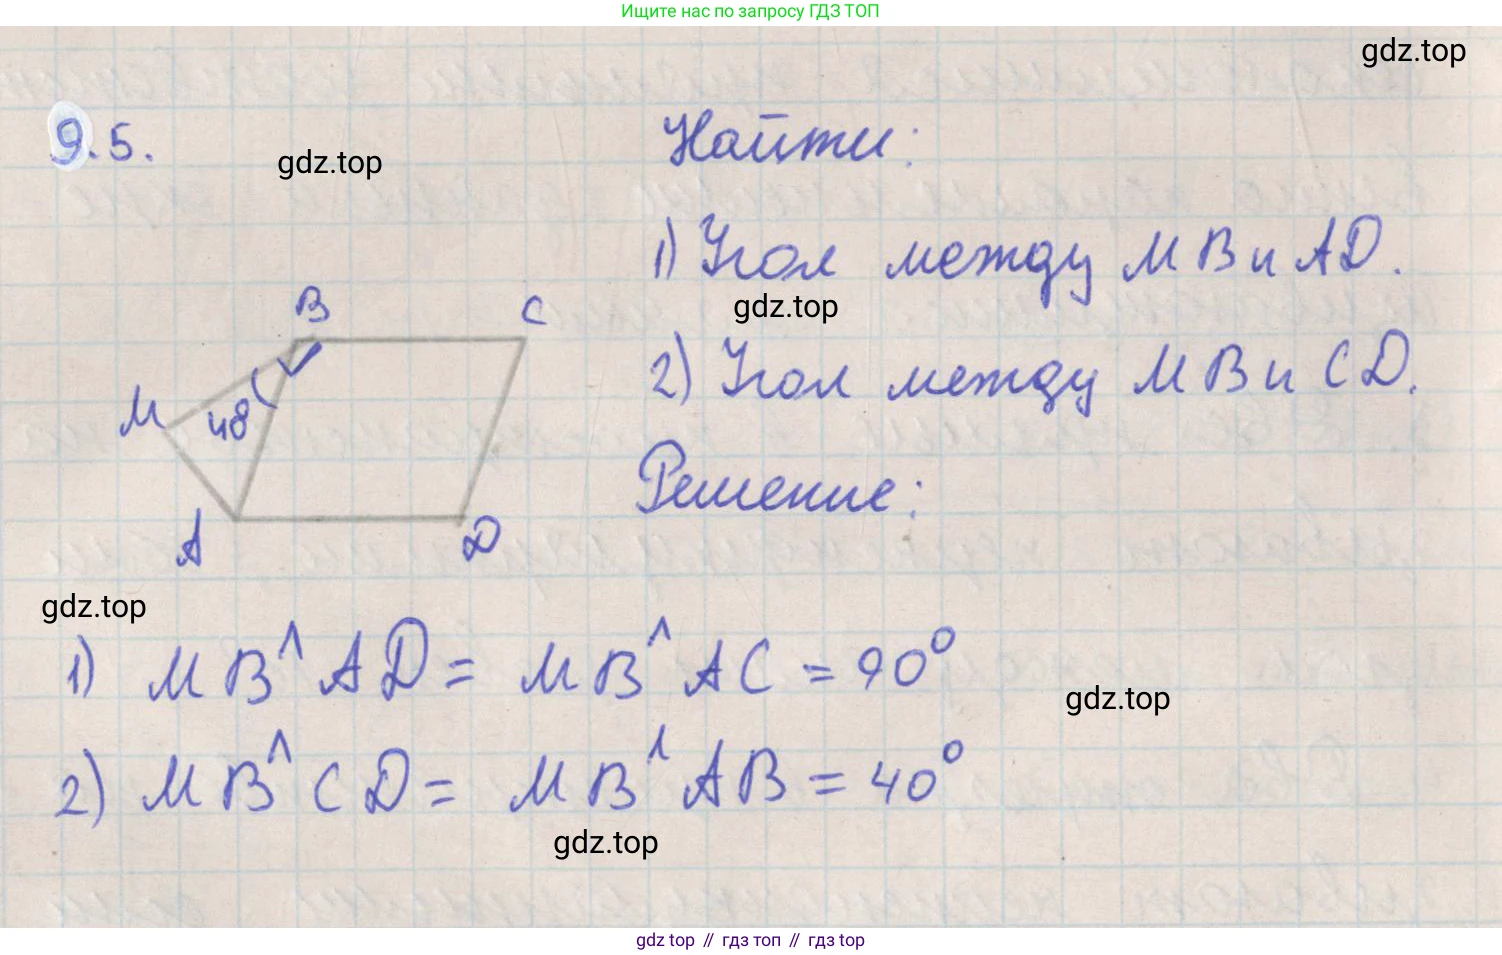 Ищите нас по запросу ГДЗ ТОП
gdz.top
9.5.
gdz.top
Найти:
1) Угол между MB и AD.
gdz.top
2) Угол между MB и CD.
Решение:
B
C
M
48
A
D
gdz.top
1) MB^AD = MB^AC = 90°
gdz.top
2) MB^CD = MB^AB = 40°
gdz.top
gdz top // гдз топ // гдз top